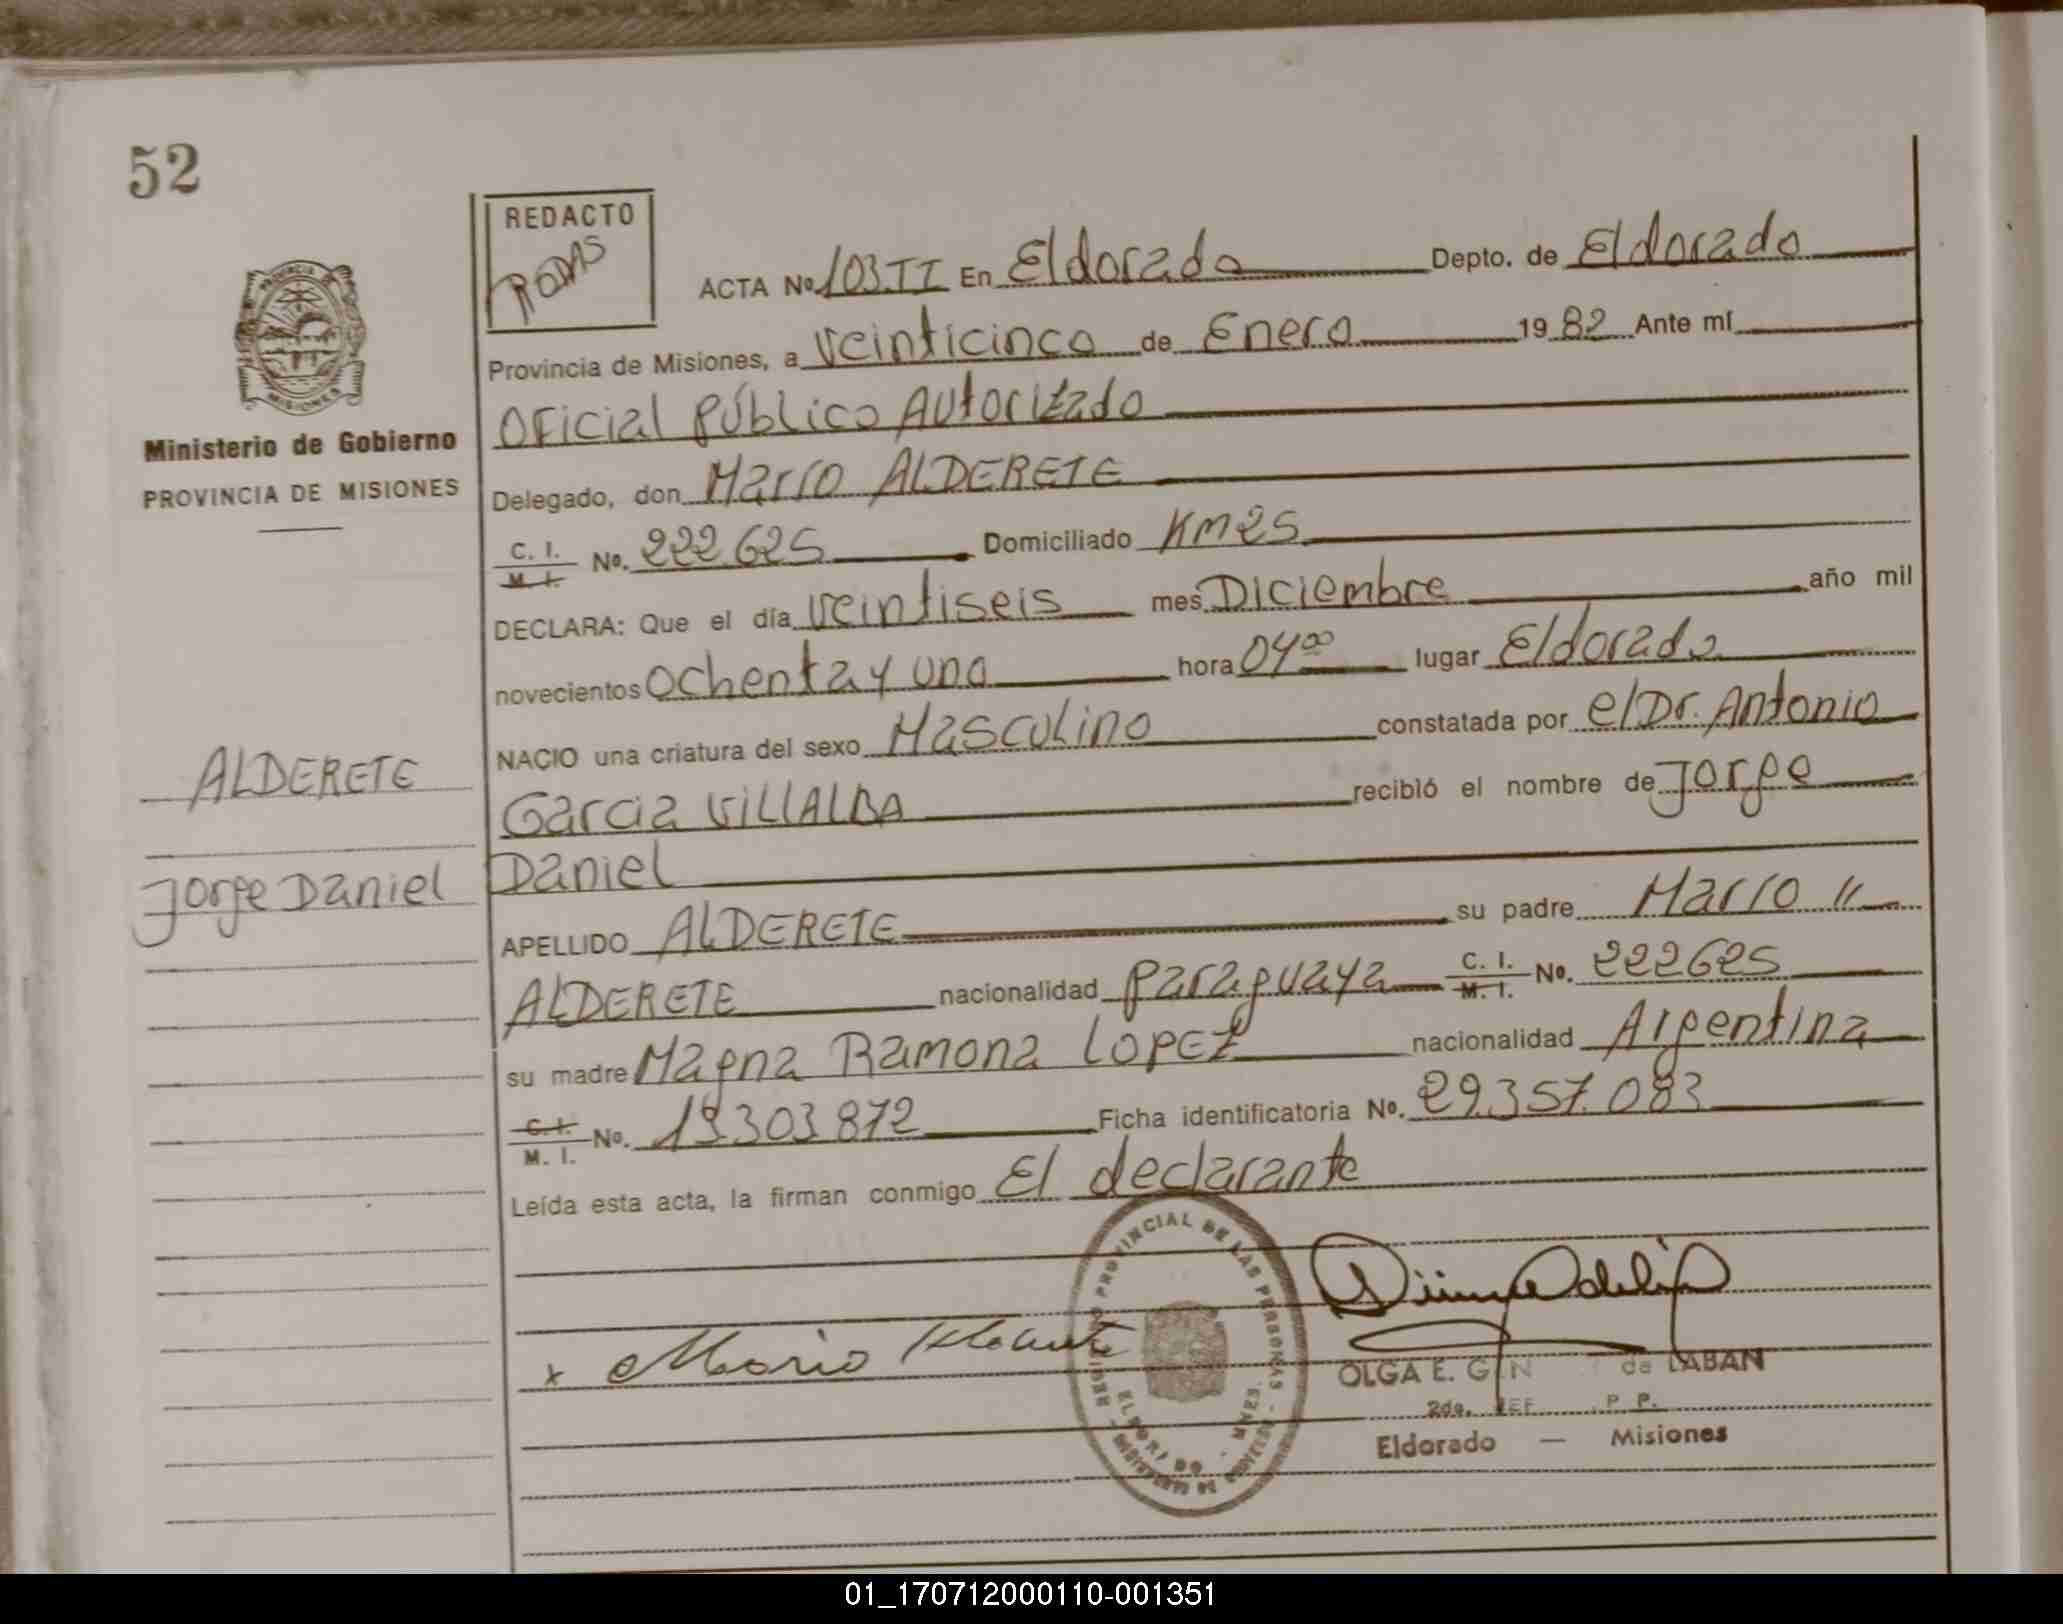 52
REDACTO
RODAS
ACTA No. 103.TI En Eldorado Depto. de Eldorado
Provincia de Misiones, a veinticinco de Enero 1982 Ante mí
Oficial Público Autorizado
Ministerio de Gobierno
PROVINCIA DE MISIONES
Delegado, don Mario ALDERETE
C. I. M. I. No. 222.625 Domiciliado Km 25
DECLARA: Que el día veintiseis mes Diciembre año mil
novecientos ochenta y uno hora 04⁰⁰ lugar Eldorado
NACIO una criatura del sexo Masculino constatada por el Dr. Antonio
Garcia VILLALBA recibió el nombre de Jorge
Daniel
ALDERETE
Jorge Daniel
APELLIDO ALDERETE su padre Mario "
ALDERETE nacionalidad paraguaya C. I. M. I. No. 222625
su madre Magna Ramona LOPEZ nacionalidad Argentina
C. I. M. I. No. 13.303.872 Ficha identificatoria No. 29.357.083
Leída esta acta, la firman conmigo El declarante
PROVINCIAL DE LAS PERSONAS
x Mario
OLGA E. de LABAN
2do. JEF P. P.
Eldorado — Misiones
01_170712000110-001351